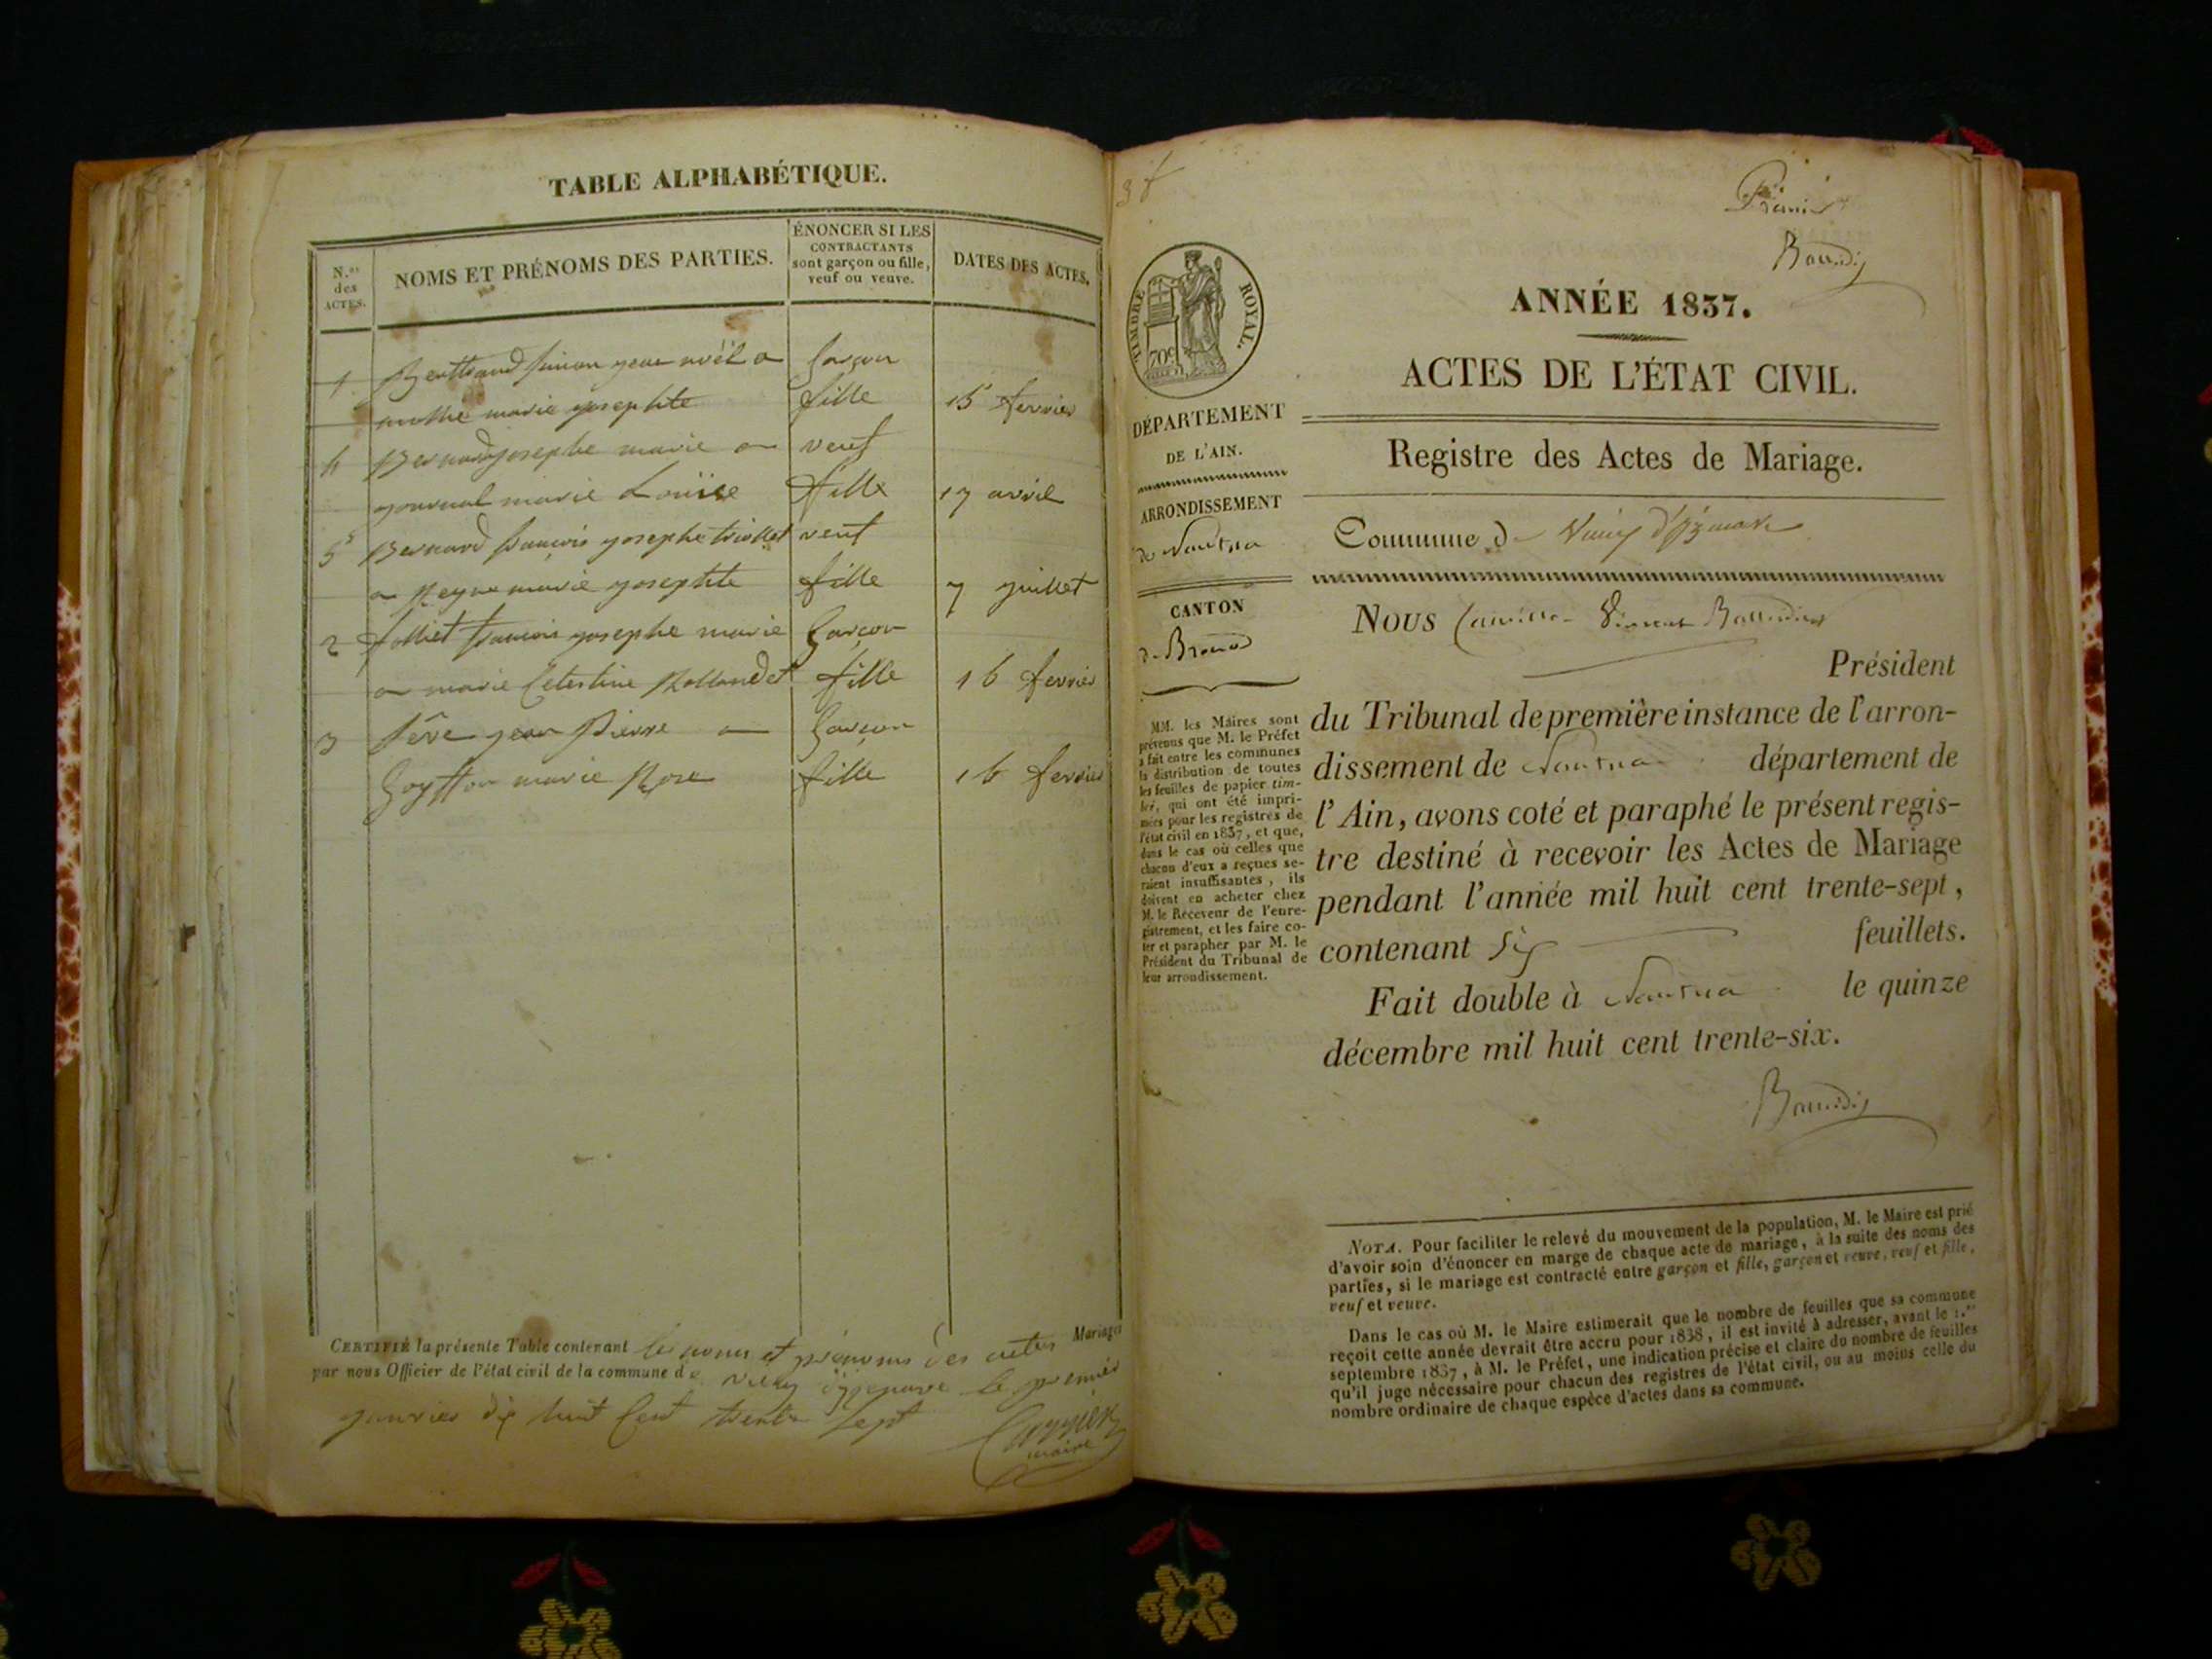 TABLE ALPHABÉTIQUE.
N.os des ACTES.
NOMS ET PRÉNOMS DES PARTIES.
ÉNONCER SI LES
CONTRACTANTS
sont garçon ou fille,
veuf ou veuve.
DATES DES ACTES.
1 simon jean noël a garçon
marie josephte fille 15 fevrier
4 Bernard josephe marie a veuf
marie Louise fille 17 avril
5 Bernard françois josephe veuf
a Reyne marie josephte fille 7 juillet
2 françois josephe marie garçon
a marie Celestine fille 16 fevrier
3 jean Pierre a garçon
marie Rose fille 16 fevrier
CERTIFIÉ la présente Table contenant les noms et prénoms des actes Mariages
par nous Officier de l'état civil de la commune de le premier
janvier dix huit Cent trente Sept
maire
TIMBRE ROYAL.
70c
ANNÉE 1837.
ACTES DE L'ÉTAT CIVIL.
DÉPARTEMENT
DE L'AIN.
ARRONDISSEMENT
de Nantua
CANTON
de Brenod
MM. les Maires sont
prévenus que M. le Préfet
a fait entre les communes
la distribution de toutes
les feuilles de papier tim-
bré, qui ont été impri-
mées pour les registres de
l'état civil en 1837, et que,
dans le cas où celles que
chacun d'eux a reçues se-
raient insuffisantes, ils
doivent en acheter chez
M. le Receveur de l'enre-
gistrement, et les faire co-
ter et parapher par M. le
Président du Tribunal de
leur arrondissement.
Registre des Actes de Mariage.
Commune de
NOUS
Président
du Tribunal de première instance de l'arron-
dissement de Nantua département de
l'Ain, avons coté et paraphé le présent regis-
tre destiné à recevoir les Actes de Mariage
pendant l'année mil huit cent trente-sept,
contenant Six feuillets.
Fait double à Nantua le quinze
décembre mil huit cent trente-six.
NOTA. Pour faciliter le relevé du mouvement de la population, M. le Maire est prié
d'avoir soin d'énoncer en marge de chaque acte de mariage, à la suite des noms des
parties, si le mariage est contracté entre garçon et fille, garçon et veuve, veuf et fille,
veuf et veuve.
Dans le cas où M. le Maire estimerait que le nombre de feuilles que sa commune
reçoit cette année devrait être accru pour 1838, il est invité à adresser, avant le 1.er
septembre 1837, à M. le Préfet, une indication précise et claire du nombre de feuilles
qu'il juge nécessaire pour chacun des registres de l'état civil, ou au moins celle du
nombre ordinaire de chaque espèce d'actes dans sa commune.